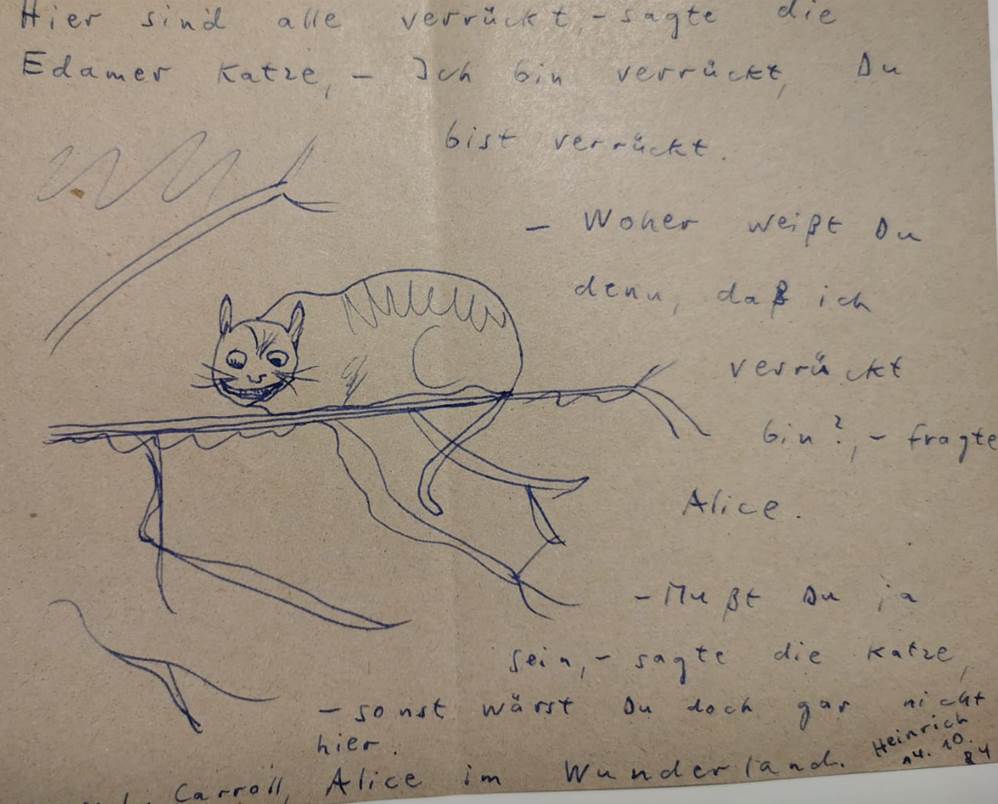 Hier sind alle verrückt, - sagte die
Edamer Katze, - Ich bin verrückt, Du
bist verrückt.
- Woher weißt Du
denn, daß ich
verrückt
bin?, - fragte
Alice.
- Mußt Du ja
sein, - sagte die Katze,
- sonst wärst Du doch gar nicht
hier.
Carroll, Alice im Wunderland.
Heinrich
14. 10.
84